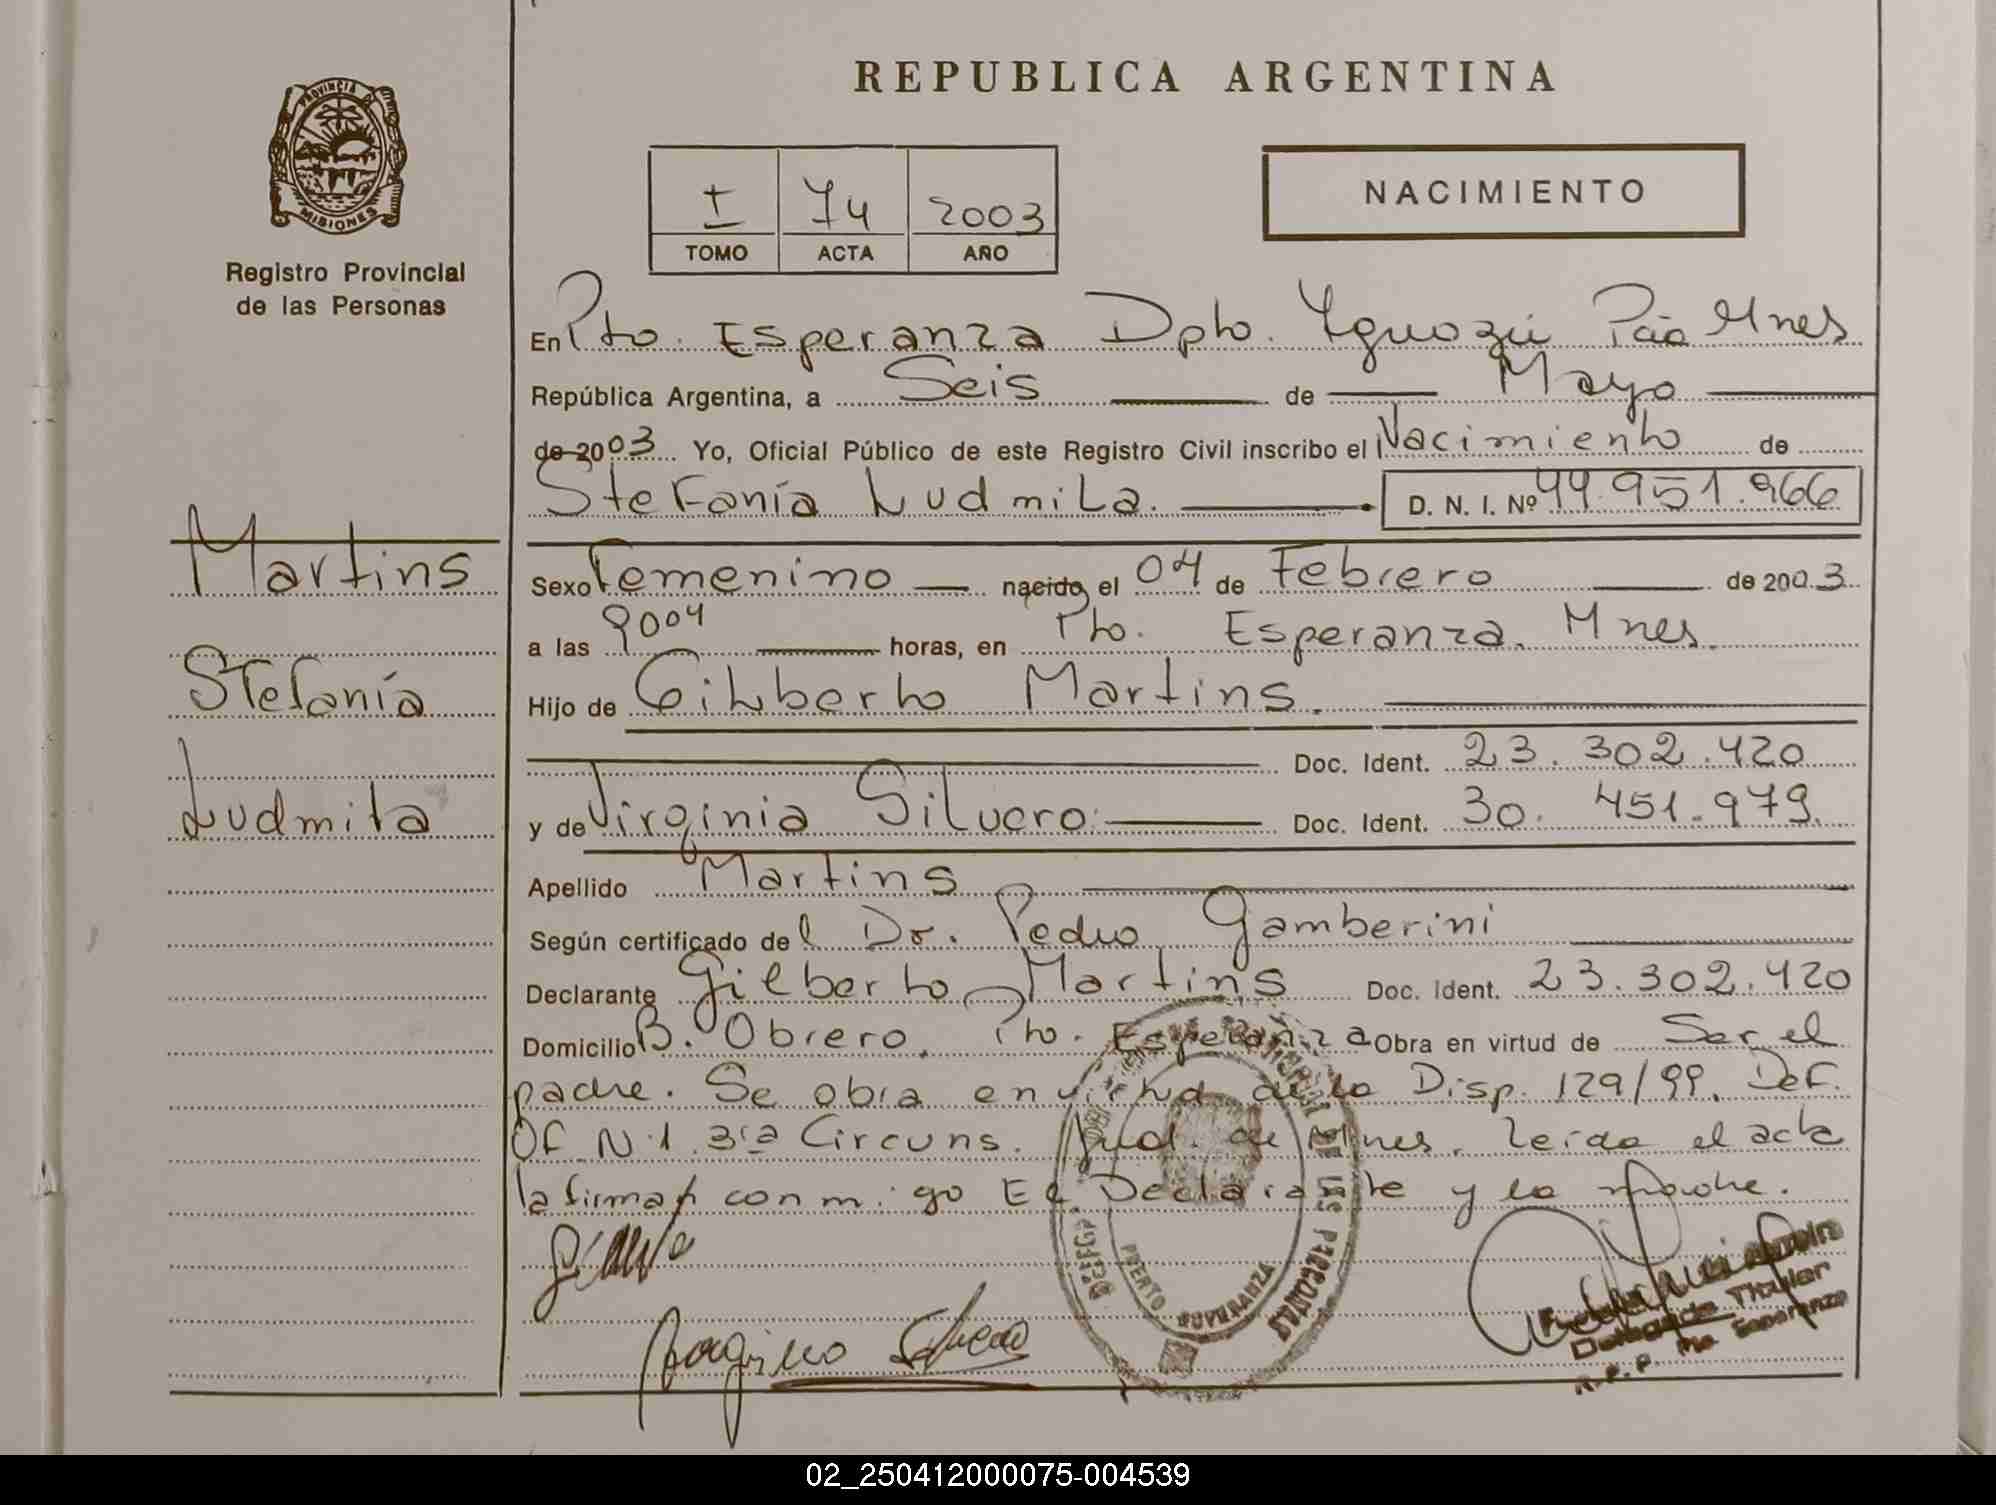 PROVINCIA DE
MISIONES
Registro Provincial
de las Personas
REPUBLICA ARGENTINA
I 74 2003
TOMO ACTA AÑO
NACIMIENTO
En Pto. Esperanza Dpto. Yguazú Pcia Mnes
República Argentina, a Seis de Mayo
de 2003 Yo, Oficial Público de este Registro Civil inscribo el Nacimiento de
Stefanía Ludmila. D. N. I. Nº 44.951.966
Martins
Stefanía
Ludmila
Sexo Femenino nacido el 04 de Febrero de 2003
a las 9004 horas, en Pto. Esperanza. Mnes.
Hijo de Gilberto Martins.
Doc. Ident. 23.302.420
y de Virginia Silvero. Doc. Ident. 30.451.979.
Apellido Martins
Según certificado del Dr. Pedro Gamberini
Declarante Gilberto Martins Doc. Ident. 23.302.420
Domicilio B. Obrero. Pto. Esperanza Obra en virtud de Ser el
padre. Se obra en virtud de la Disp. 129/99. Def.
Of. N.1 3ra Circuns. Jud. de Mnes. Leída el acta
la firman conmigo El Declarante y la madre.
DE LAS PERSONAS
PUERTO ESPERANZA
Delegada Titular
R. P. P. Pto. Esperanza
02_250412000075-004539